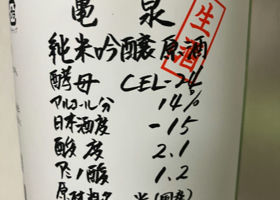 亀泉
生酒
純米吟醸原酒
酵母 CEL-24
アルコール分 14%
日本酒度 -15
酸度 2.1
アミノ酸 1.2
原材料名 米(国産)